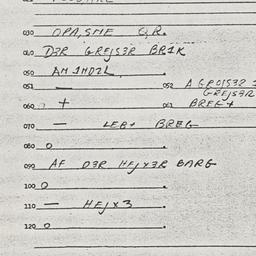 030 OPA, SME O,R.
040 DER GREJSER BRIK
050 AN INDIL.
051 — 052 A GROISER I
GREJSER
060 + 061 BREG +
070 — LEB+ BREG
080 0
090 AF DER HEJXER BARG
100 0
110 — HEJX3
120 0